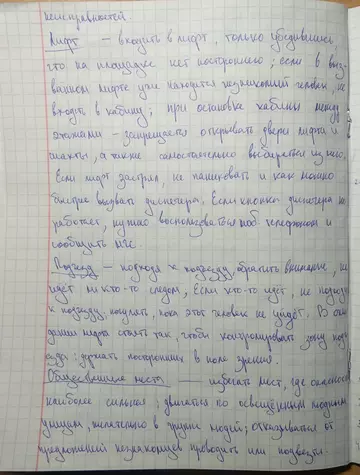 неисправностей.
Лифт — входить в лифт, только убедившись,
что на площадке нет посторонних; если в выз-
ванном лифте уже находится незнакомый человек, не
входить в кабину; при остановке кабины между
этажами — запрещается открывать двери лифта и
шахты, а также самостоятельно выбираться из него.
Если лифт застрял, не паниковать и как можно
быстрее вызвать диспетчера. Если кнопка диспетчера не
работает, нужно воспользоваться моб. телефоном и
сообщить МЧС.
Подъезд — подходя к подъезду, обратить внимание, не
идёт ли кто-то следом, если кто-то идёт, не подходя
к подъезду, погулять, пока этот человек не уйдёт. В ожи-
дании лифта стоять так, чтобы контролировать зону подъ-
езда: держать посторонних в поле зрения.
Общественные места — избегать мест, где опасность
наиболее сильная; двигаться по освещённым людным
улицам, желательно в группе людей; отказываться от
предложений незнакомцев проводить или подвезти.